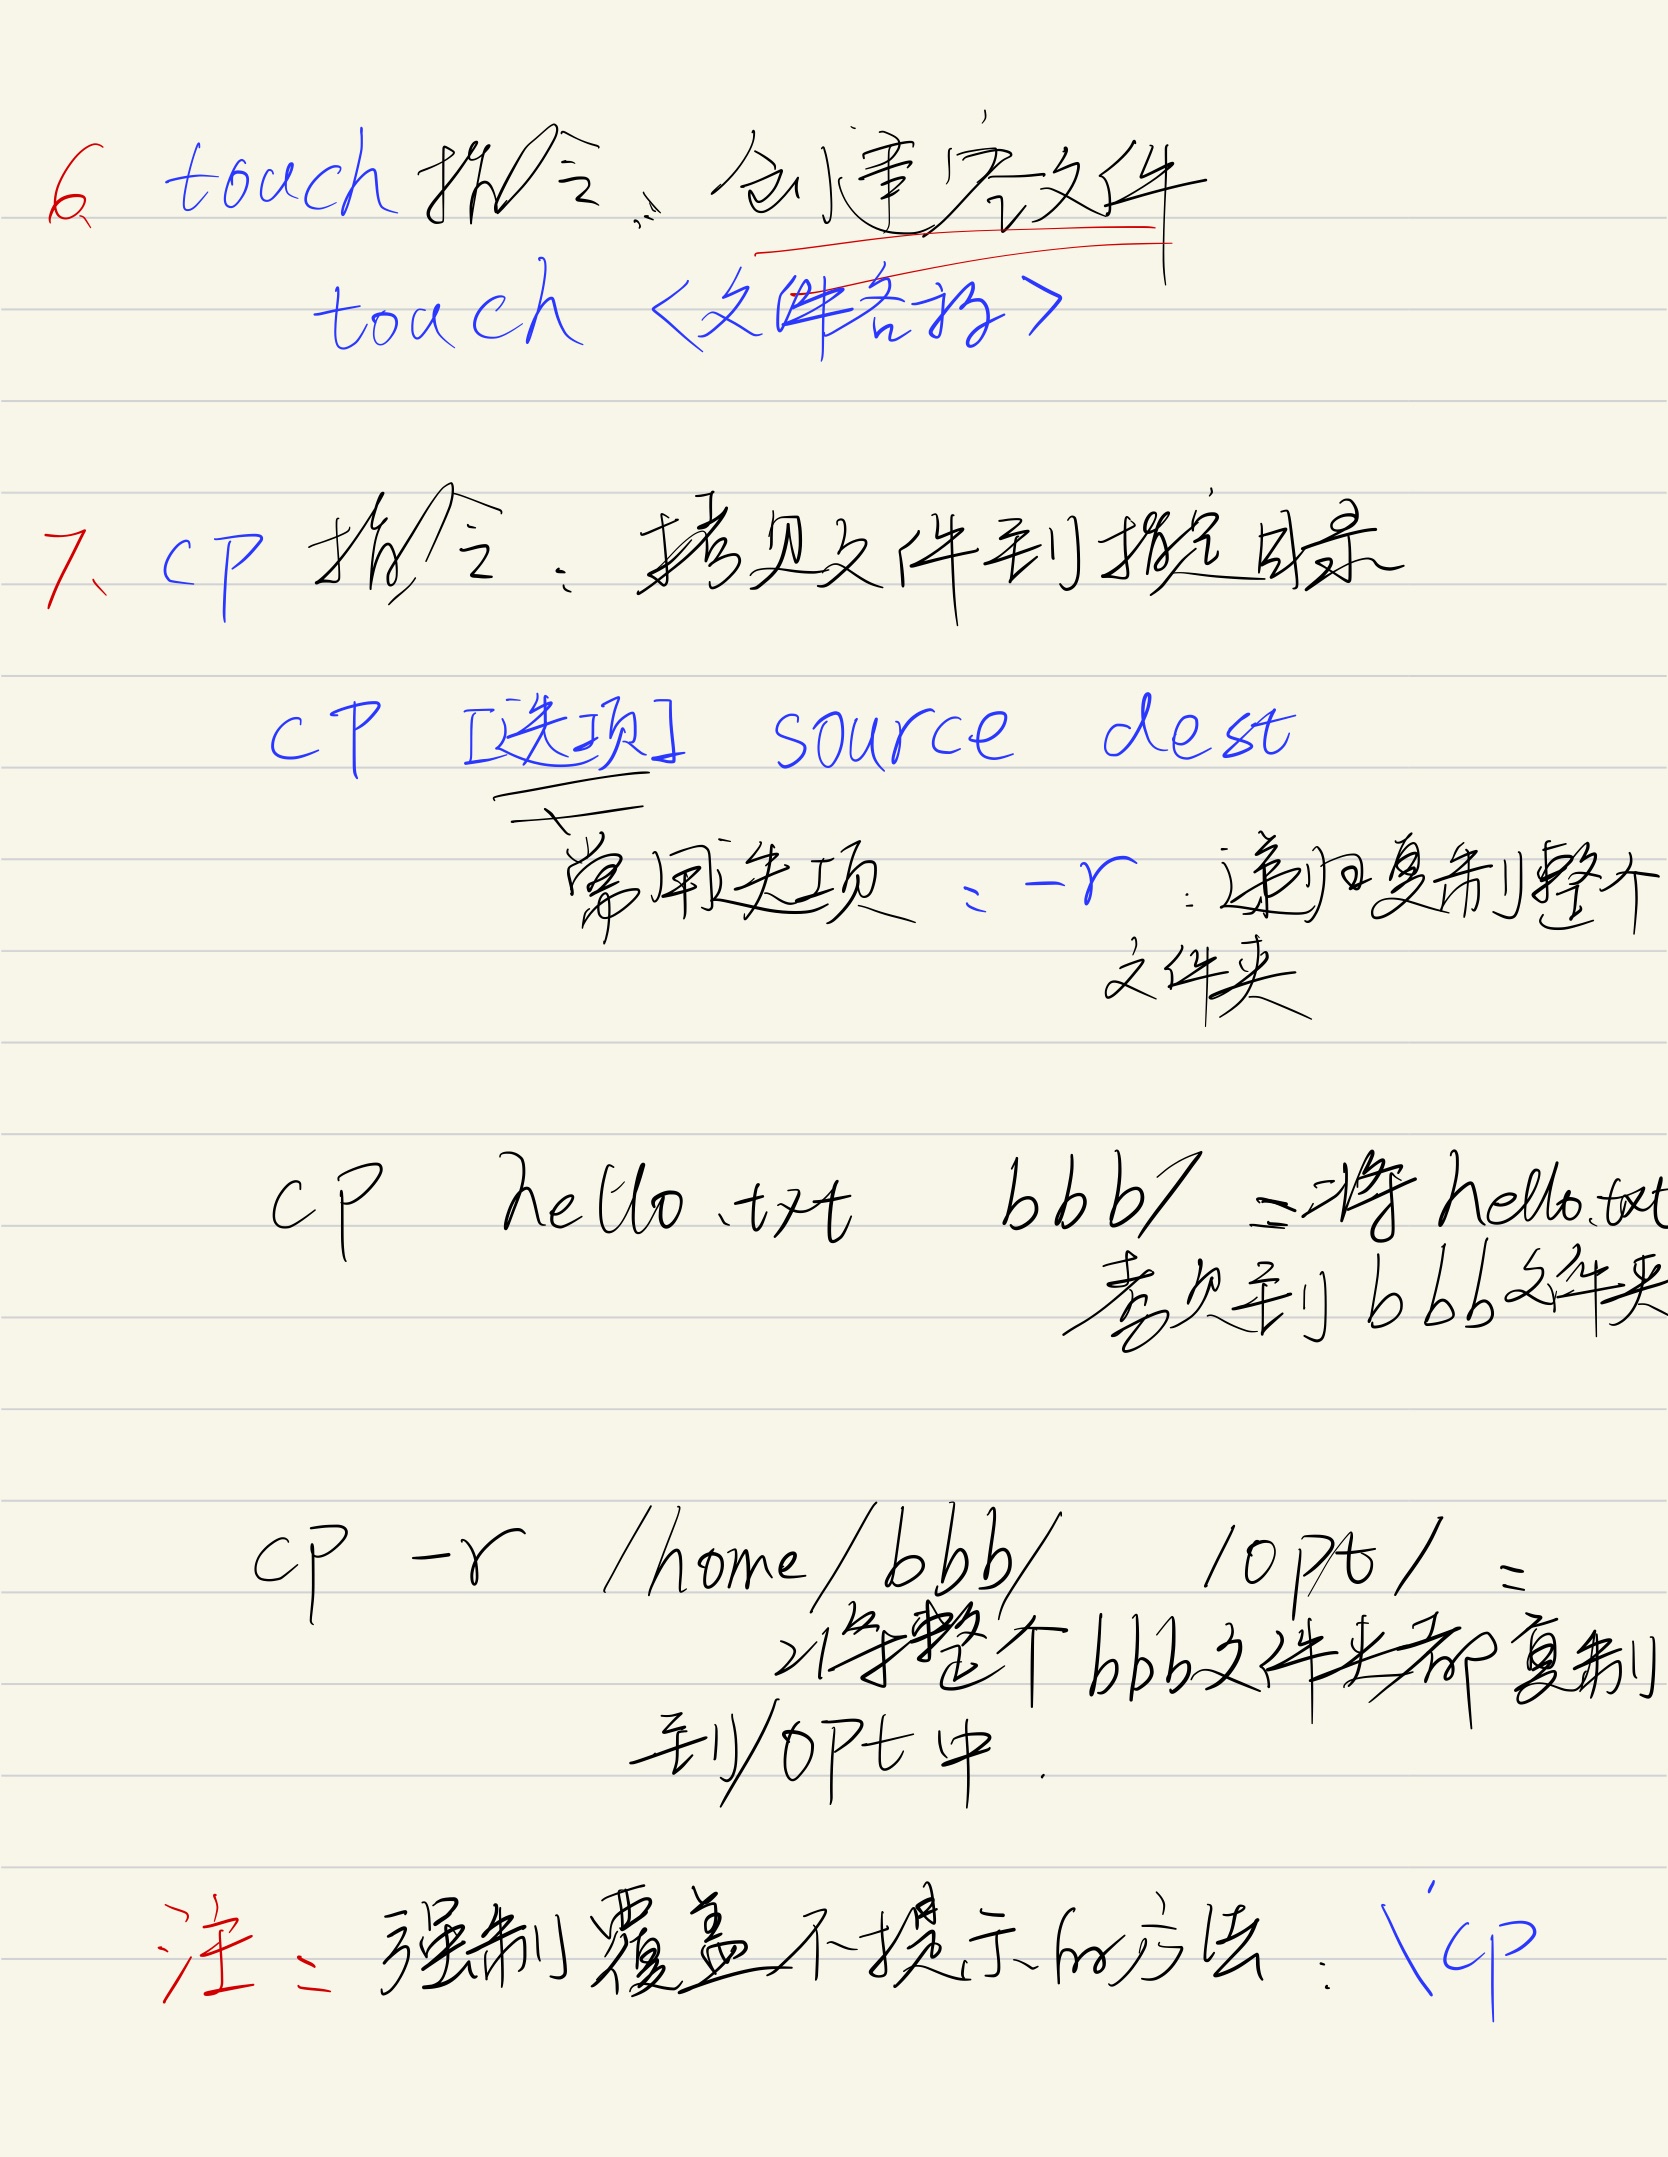 6、touch指令：创建空文件
touch <文件名称>
7、cp 指令：拷贝文件到指定目录
cp [选项] source dest
常用选项：-r：递归复制整个
文件夹
cp hello.txt bbb/：将hello.txt
拷贝到bbb文件夹
cp -r /home/bbb/ /opt/：
将整个bbb文件夹都复制
到/opt中.
注：强制覆盖不提示的方法：\cp